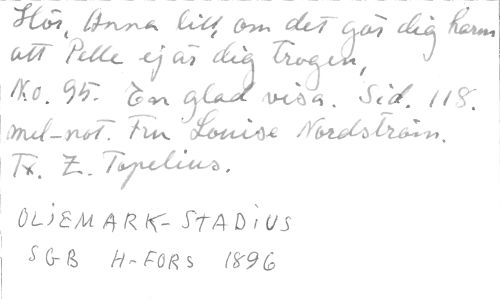 Hör, Anna lill, om det gör dig harm
att Pelle ej är dig trogen,
N:o. 95. En glad visa. Sid. 118.
mel-not. Fru Louise Nordström.
Tx. Z. Topelius.
OLIEMARK-STADIUS
SGB H-FORS 1896